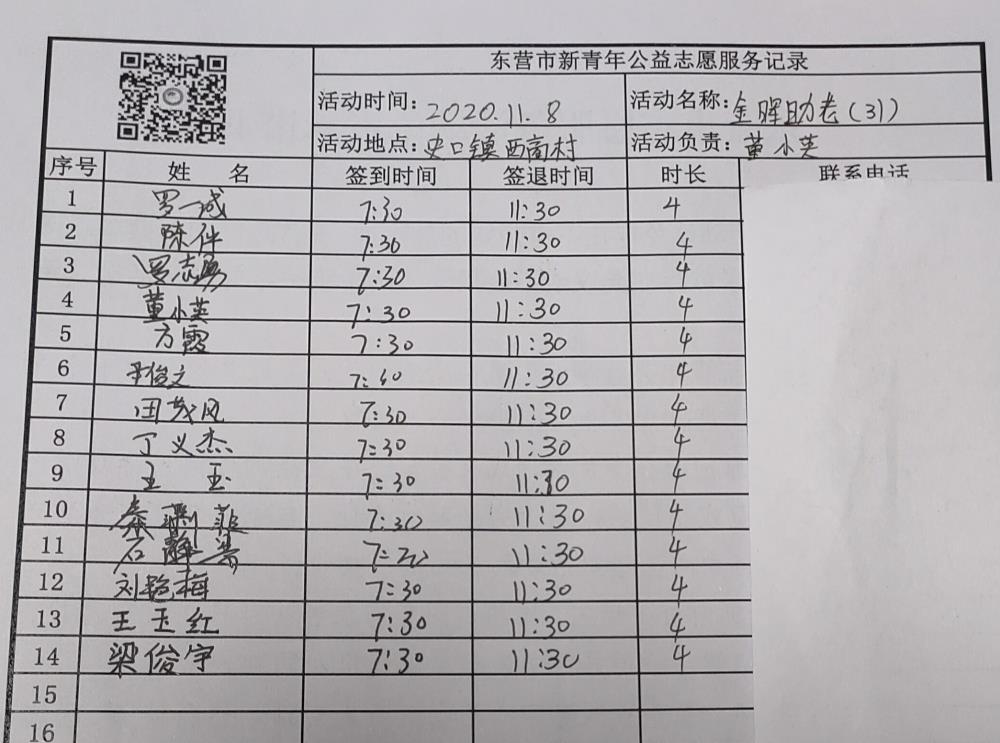 东营市新青年公益志愿服务记录
活动时间: 2020.11.8 活动名称: 金晖助老(31)
活动地点: 史口镇西商村 活动负责: 董小英
序号 姓 名 签到时间 签退时间 时长 联系电话
1 罗一诚 7:30 11:30 4
2 陈伴 7:30 11:30 4
3 罗志勇 7:30 11:30 4
4 董小英 7:30 11:30 4
5 方霞 7:30 11:30 4
6 俊文 7:30 11:30 4
7 田茂风 7:30 11:30 4
8 丁义杰 7:30 11:30 4
9 王 玉 7:30 11:30 4
10 7:30 11:30 4
11 石静 11:30 4
12 刘艳梅 7:30 11:30 4
13 王玉红 7:30 11:30 4
14 梁俊宇 7:30 11:30 4
15
16